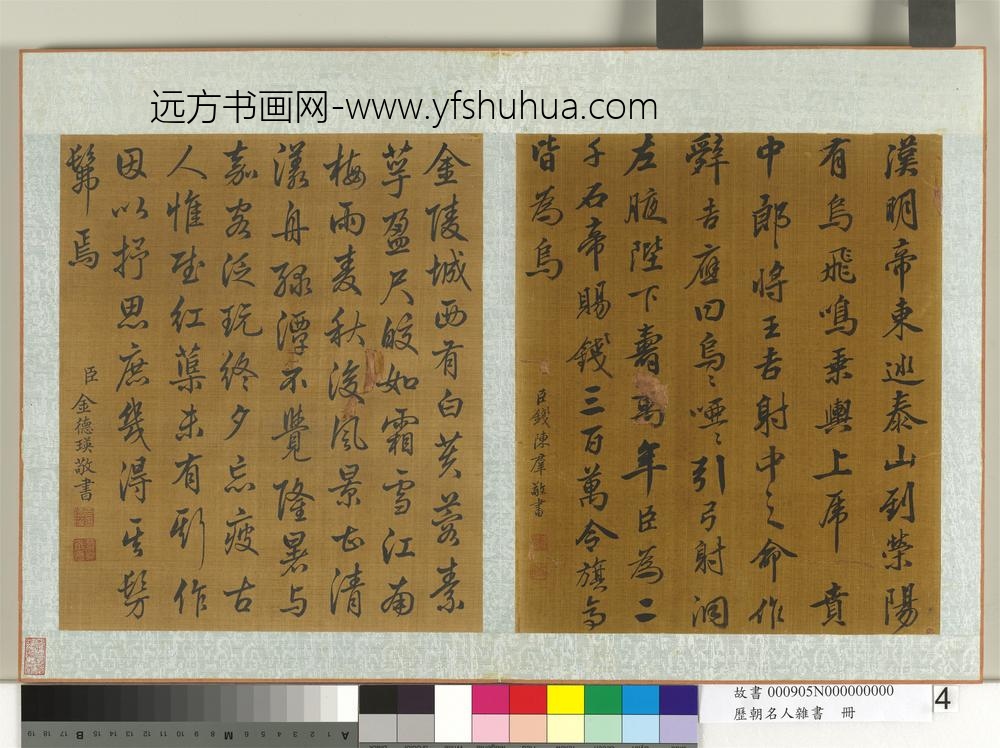 远方书画网-www.yfshuhua.com
漢明帝東巡泰山到滎陽
有烏飛鳴乘輿上虎賁
中郎將王吉射中之命作
辭吉應曰烏〻啞〻引弓射洞
左腋陛下壽萬年臣為二
千石帝賜錢三百萬令旗亭
皆為烏
臣錢陳羣敬書
金陵城西有白芙蓉素
萼盈尺皎如霜雪江南
梅雨麦秋後風景甚清
漾舟緑潭不覺隆暑与
嘉客泛玩終夕忘疲古
人惟賦紅蕖未有斯作
因以抒思庶幾得其髣
髴焉
臣金德瑛敬書
故書 000905N000000000
歷朝名人雜書 冊
4